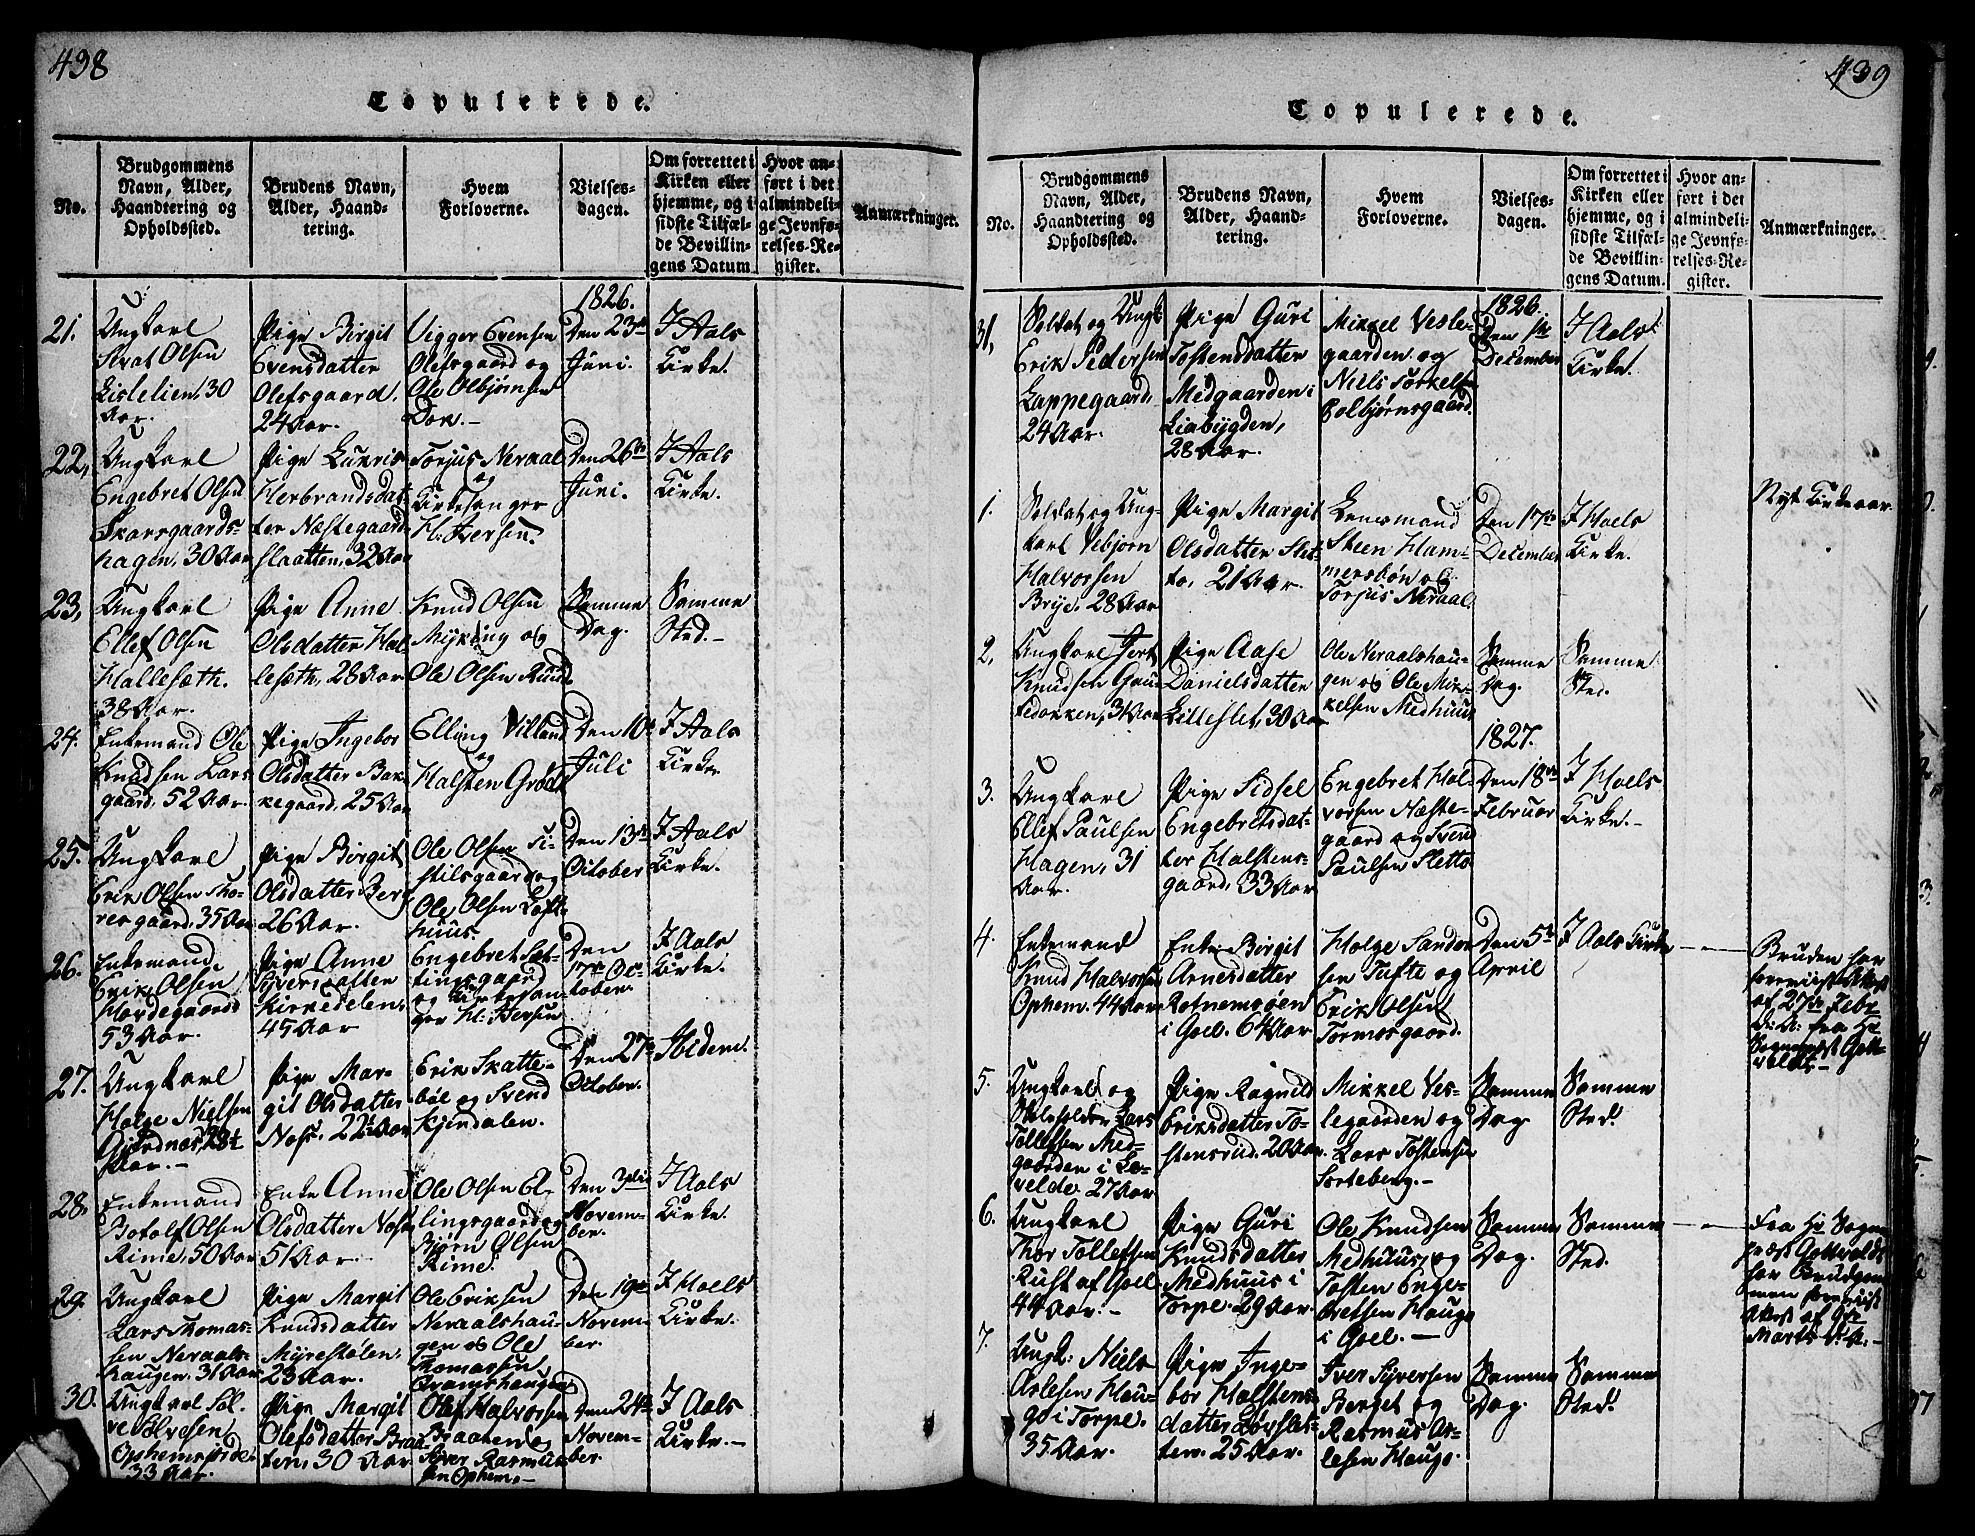 498
Copulerede.
No.
Brudgommens
Navn, Alder,
Haandtering og
Opholdssted.
Brudens Navn,
Alder, Haand-
tering.
Hvem
Forloverne.
Vielses-
dagen.
Om forrettet i
Kirken eller
hjemme, og i
sidste Tilfæl-
de Bevillin-
gens Datum.
Hvor an-
ført i det
almindeli-
ge Jevnfø-
relses-Re-
gister.
Anmærkninger.
1826.
21.
Ungkarl
Olsen
Lislelien, 30
Aar.
Pige Birgit
Evensdatter
Olefsgaard,
24 Aar.
Vigger Evensen
Olefsgaard og
Ole Olbjørnsen
Dok.-
Den 23de
Juni.
I Aals
Kirke.
22,
Ungkarl
Engebret Olsen
Skarsgaards-
hagen, 30 Aar
Pige Lukris
Herbrandsdat-
ter Næstegaard-
slaatten, 32 Aar
Torjus Neraal
og
Kirkesanger
H. Iversen.
Den 26de
Juni.
I Aals
Kirke.
23,
Ungkarl
Ellef Olsen
Hallesæth.
38 Aar.
Pige Anne
Olsdatter Hal-
lesæth, 28 Aar
Knud Olsen
Myking og
Ole Olsen Ruud
Samme
Dag.
Samme
Sted.-
24.
Enkemand Ole
Knudsen Lars-
gaard, 52 Aar.
Pige Ingebor
Olsdatter Bak-
kegaard, 25 Aar
Elling Villand
og
Halsten Grøtt
Den 10de
Juli
I Aals
Kirke
25.
Ungkarl
Erik Olsen Tho-
resgaard, 35 Aar
Pige Birgit
Olsdatter Berg
26 Aar.
Ole Olsen Ti-
stilsgaard og
Ole Olsen Loft-
huus.
Den 13de
October
I Aals
Kirke.
26.
Enkemand,
Erik Olsen
Hordegaard
53 Aar.
Pige Anne
Syversdatter
Kirkedelen,
45 Aar
Engebret Sat-
tingsgaard
og Kirkesan-
ger H: Iversen
Den
17de Oc-
tober.
I Aals
Kirke.
27.
Ungkarl
Holge Nielsen
Gjerdnes, 28½
Aar.-
Pige Mar-
git Olsdatter
Noss. 22½ Aar
Erik Skatte-
bøl og Svend
Kjendalen.
Den 27de
October.
Ibidem.
28.
Enkemand
Botolf Olsen
Rime, 50 Aar
Enke Anne
Olsdatter Noss
51 Aar.
Ole Olsen El-
lingsgaard og
Bjørn Olsen
Rime.
Den 3die
Novem-
ber.
I Aals
Kirke.
29.
Ungkarl
Lars Thomas-
sen Neraals-
haugen. 31 Aar
Pige Margit
Knudsdatter
Myrestølen.
23 Aar.
Ole Eriksen
Neraalshau-
gen og Ole
Thomassen
Den 19de
Novem-
ber.
I Hoels
Kirke.
30.
Ungkarl Søl-
ve Sølvesen
33 Aar.
Pige Margit
Olefsdatter Braa-
ten, 30 Aar.
Olef Halvorsen
Braaten og
Syver Rasmus-
sen Ophem,-
Den 24de
Novem-
ber.
I Aals
Kirke.-
439
Copulerede.
No.
Brudgommens
Navn, Alder,
Haandtering og
Opholdssted.
Brudens Navn,
Alder, Haand-
tering.
Hvem
Forloverne.
Vielses-
dagen.
Om forrettet i
Kirken eller
hjemme, og i
sidste Tilfæl-
de Bevillin-
gens Datum.
Hvor an-
ført i det
almindeli-
ge Jevnfø-
relses-Re-
gister.
Anmærkninger.
1826.
31,
Soldat og Ungk:
Erik Pedersen
Lappegaard,
24 Aar.
Pige Guri
Tostensdatter
Medgaarden i
Liabygden,
28 Aar.
Mikkel Vesle-
gaarden og
Niels Torkelsen
Golbjørnsgaard.
Den 1ste
December
I Aals
Kirke.
1.
Soldat og Ung-
karl Vebjørn
Halvorsen
Brye. 28 Aar
Pige Margit
Olsdatter Slet-
to, 21 Aar.
Lensmand
Steen Ham-
mersbøn og
Torjus Neraal
Den 17de
December
I Hoels
Kirke.
Nyt Kirkeaar.
2,
Ungkarl Gert
Knudsen Gau-
31 Aar
Pige Aase
Danielsdatter
Lilleslet, 30 Aar
Ole Neraalshau-
gen og Ole Mik-
kelsen Medhuus
Samme
Dag.
Samme
Sted.
1827.
3.
Ungkarl
Ellef Paulsen
Hagen, 31
Aar.
Pige Sidsel
Engebretsdat-
ter Halstens-
gaard, 33 Aar
Engebret Hal-
vorsen Næste-
gaard og Svend
Paulsen Sletto
Den 18de
Februar
I Hoels
Kirke.-
4.
Enkemand
Knud Halvorsen
Ophem. 44 Aar
Enke Birgit
Arnesdatter
Rotnemøen
i Goel. 64 Aar
Holge Sandor-
sen Tufte og
Erik Olsen
Tormosgaard.
Den 5te
April
I Aals Kirke
Bruden har
foreviist Attest
af 27de Febr
d: A: fra Hr
Sognepræst Gott-
valdt-
5.
Ungkarl og
Lars
Tollefsen Med-
gaarden i Le-
velde. 27 Aar
Pige Ragnild
Eriksdatter To-
stensrud. 20 Aar
Mikkel Ves-
legaarden og
Lars Tostensen
Torteberg.-
Samme
Dag
Samme
Sted.
6.
Ungkarl
Thor Tollefsen
Rust af Goel
44 Aar.-
Pige Guri
Knudsdatter
Medhuus i
Torpe. 29 Aar.
Ole Knudsen
Medhuus, og
Tosten Enge-
bretsen Haugo
i Goel.-
Samme
Dag.
Samme
Sted.
Fra Hr Sogne-
præst Gottvaldt
har Brudgom-
men foreviist
Attest af 9de
Marts d. A.-
7.
Ungk: Niels
Aslesen Hau-
go i Torpe.
35 Aar.
Pige Inge-
bor Halstens-
datter Løvslet-
ten. 25 Aar.
Iver Syversen
Berget og
Rasmus As-
lesen Haugo.
Samme
Dag.
Samme
Sted.